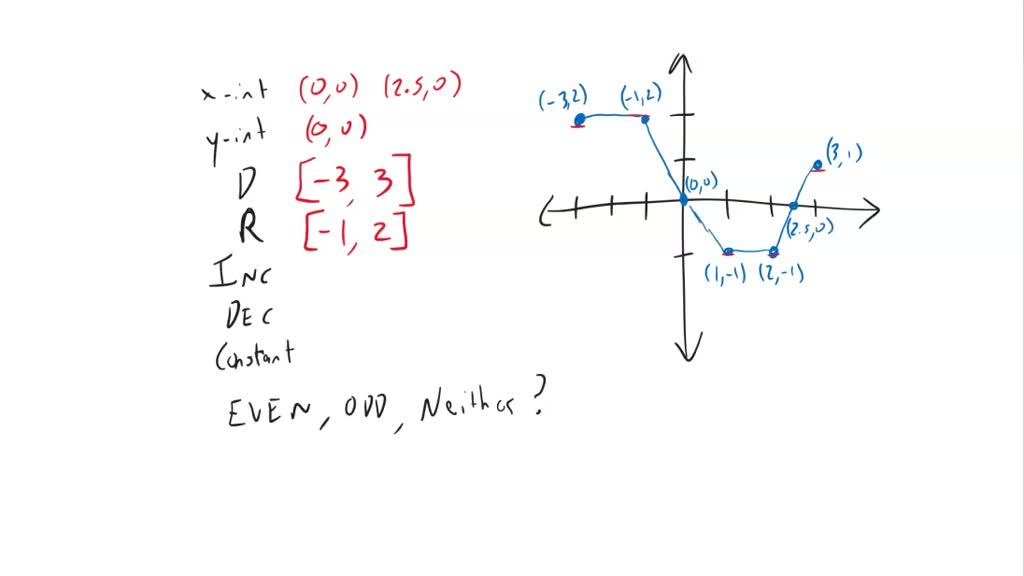 x-int (0,0) (2.5,0)
y-int (0,0)
D [-3, 3]
R [-1, 2]
INC
DEC
Constant
EVEN, ODD, Neither?
(-3,2)
(-1,2)
(3,1)
(0,0)
(2.5,0)
(1,-1)
(2,-1)